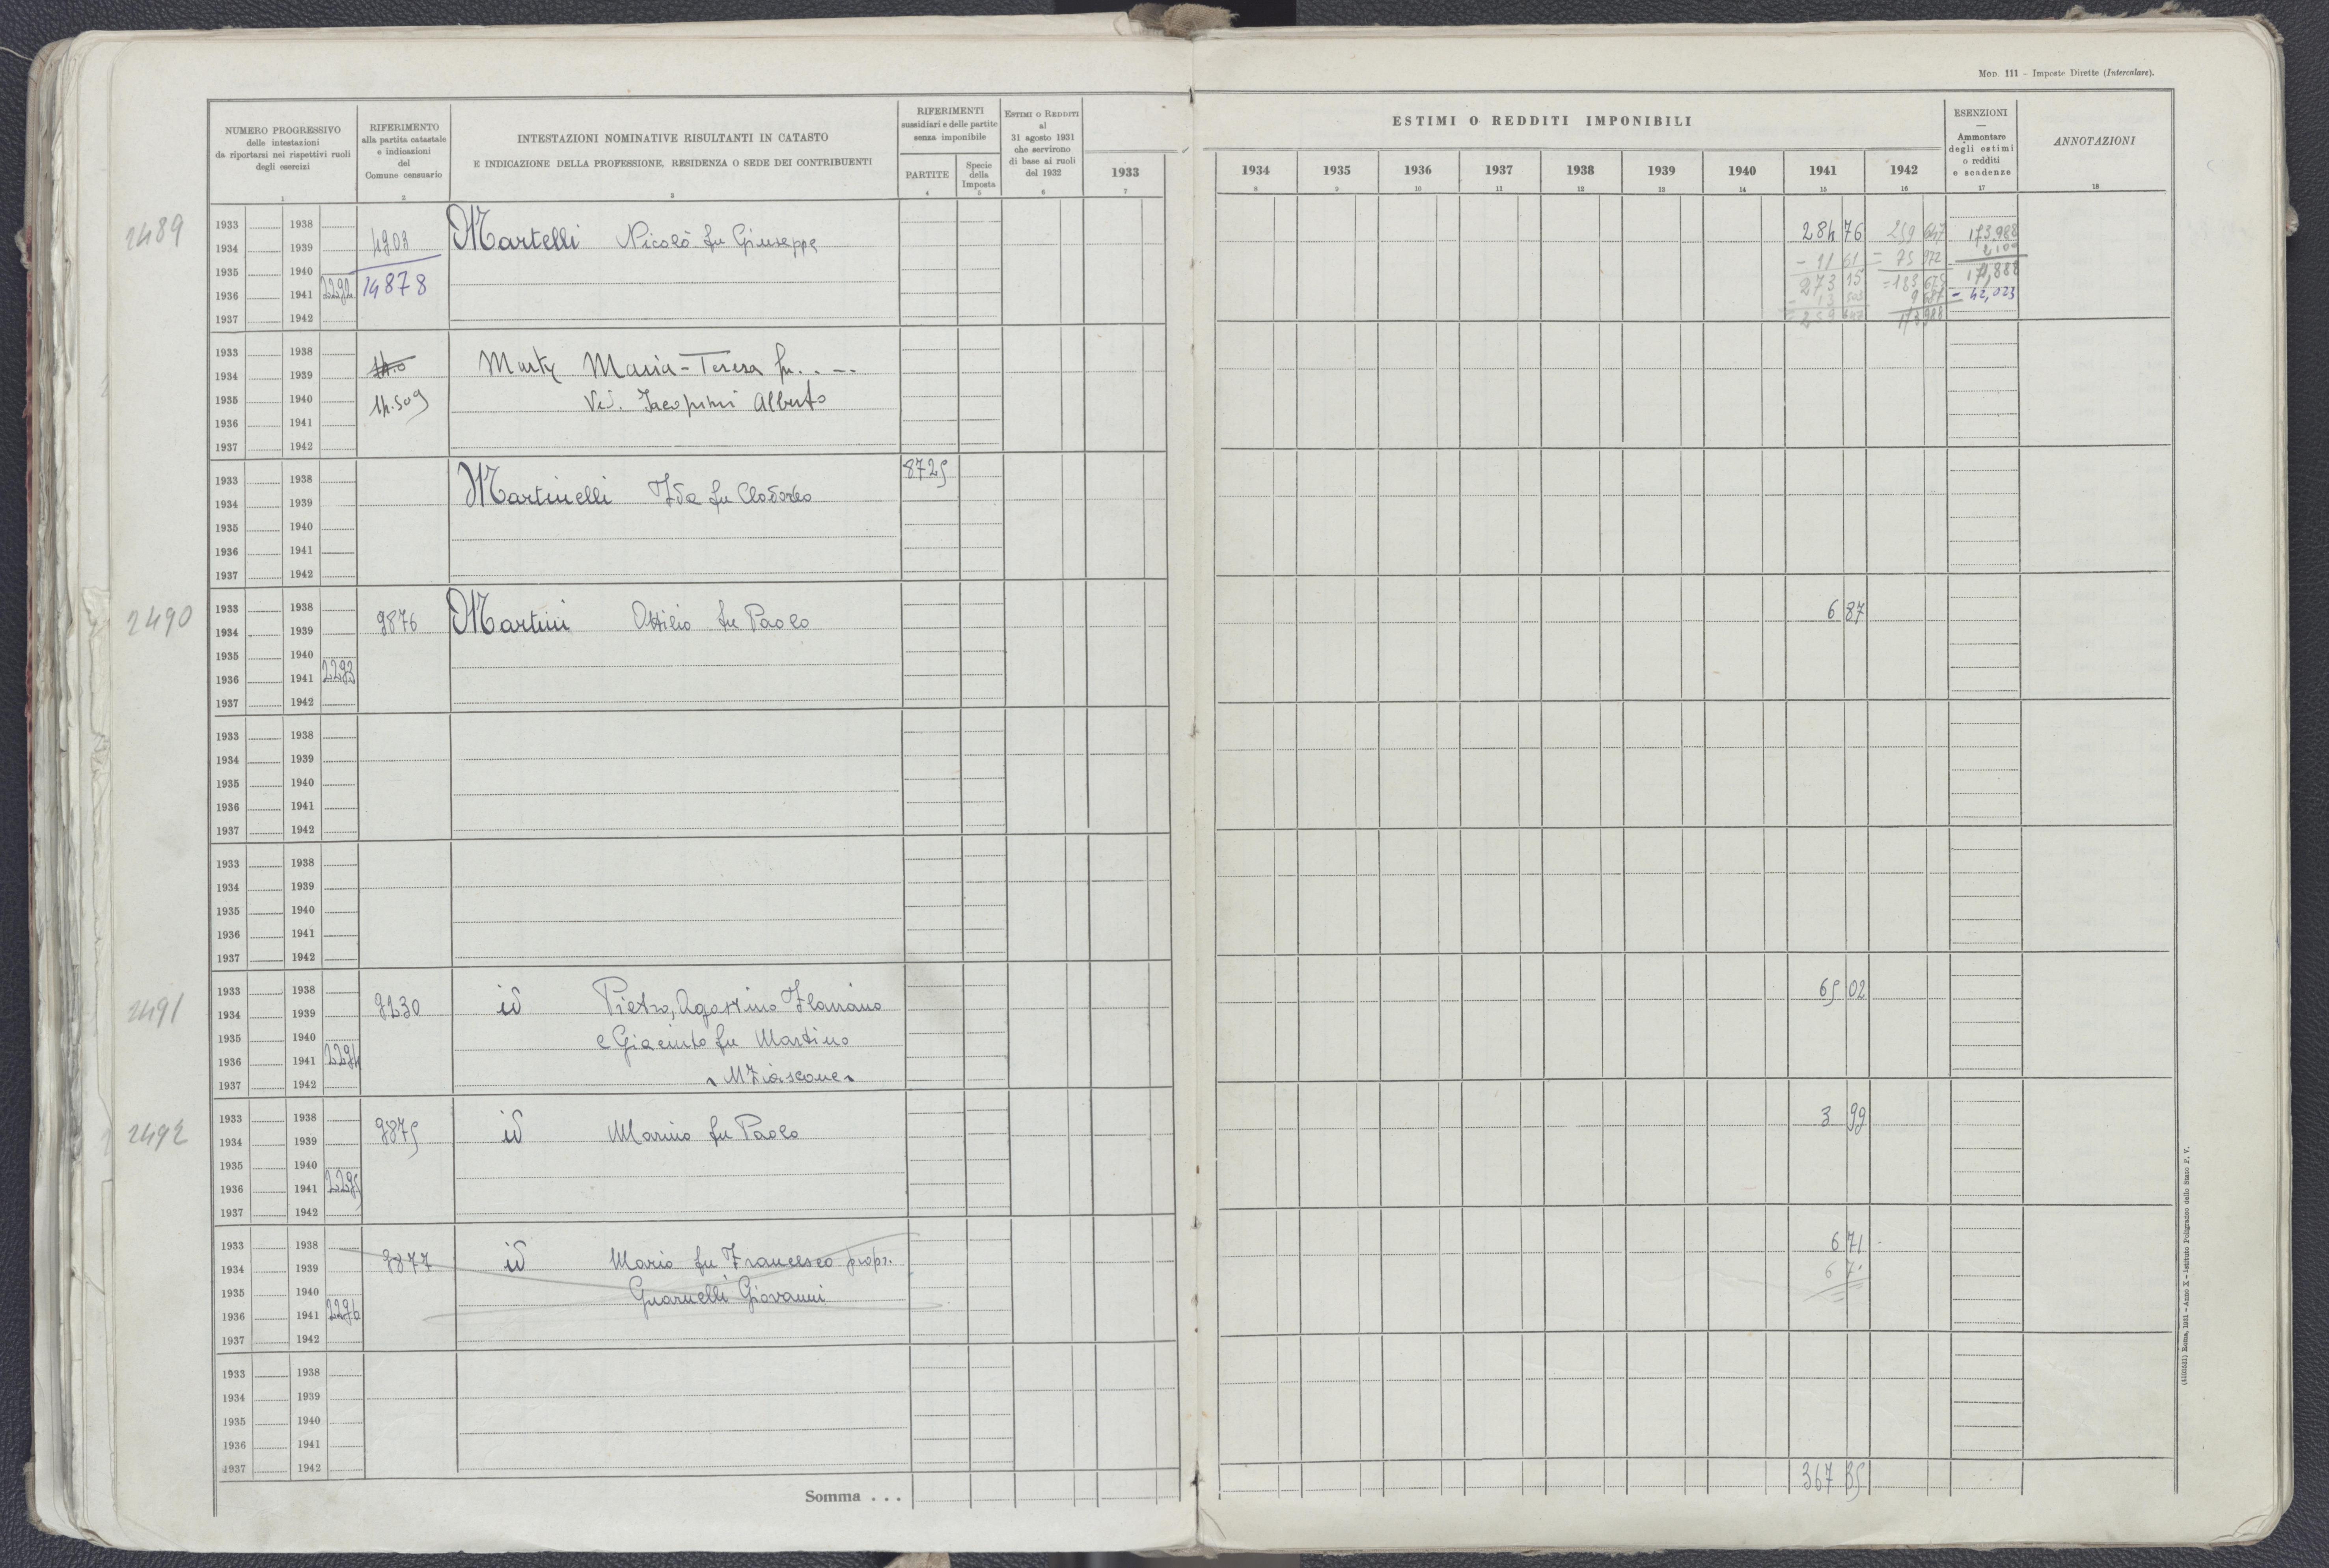 Mod. 111 - Imposte Dirette (Intercalare).
NUMERO PROGRESSIVO
delle intestazioni
da riportarsi nei rispettivi ruoli
degli esercizi
RIFERIMENTO
alla partita catastale
e indicazioni
del
Comune censuario
INTESTAZIONI NOMINATIVE RISULTANTI IN CATASTO
E INDICAZIONE DELLA PROFESSIONE, RESIDENZA O SEDE DEI CONTRIBUENTI
RIFERIMENTI
sussidiari e delle partite
senza imponibile
PARTITE
Specie
della
Imposta
Estimi o Redditi
al
31 agosto 1931
che servirono
di base ai ruoli
del 1932
1933
ESTIMI O REDDITI IMPONIBILI
1934 1935 1936 1937 1938 1939 1940 1941 1942
ESENZIONI
—
Ammontare
degli estimi
o redditi
e scadenze
ANNOTAZIONI
1 2 3 4 5 6 7 8 9 10 11 12 13 14 15 16 17 18
2489
1933 1938
1934 1939
1935 1940
1936 1941 2292
1937 1942
14878
Martelli Nicolò fu Giuseppe
284 76
- 11 61
273 15
259 647
- 75 972
173,988
2,100
- 42,023
1933 1938
1934 1939
1935 1940
1936 1941
1937 1942
14.509
Maria-Teresa fu. . --
Ved. Iacopini Alberto
1933 1938
1934 1939
1935 1940
1936 1941
1937 1942
Martinelli Ida fu Clodoveo
8725
2490
1933 1938
1934 1939
1935 1940
1936 1941 2293
1937 1942
9876
Martini Attilio fu Paolo
6 87
1933 1938
1934 1939
1935 1940
1936 1941
1937 1942
1933 1938
1934 1939
1935 1940
1936 1941
1937 1942
2491
1933 1938
1934 1939
1935 1940
1936 1941 2294
1937 1942
9230
id Pietro, Agostino
e Giacinto fu Martino
65 02
2492
1933 1938
1934 1939
1935 1940
1936 1941 2295
1937 1942
9875
id Marino fu Paolo
3 99
1933 1938
1934 1939
1935 1940
1936 1941 2296
1937 1942
9877
id Mario fu Francesco propr.
Guarnelli Giovanni
6 71
6 71
1933 1938
1934 1939
1935 1940
1936 1941
1937 1942
Somma . . .
367 35